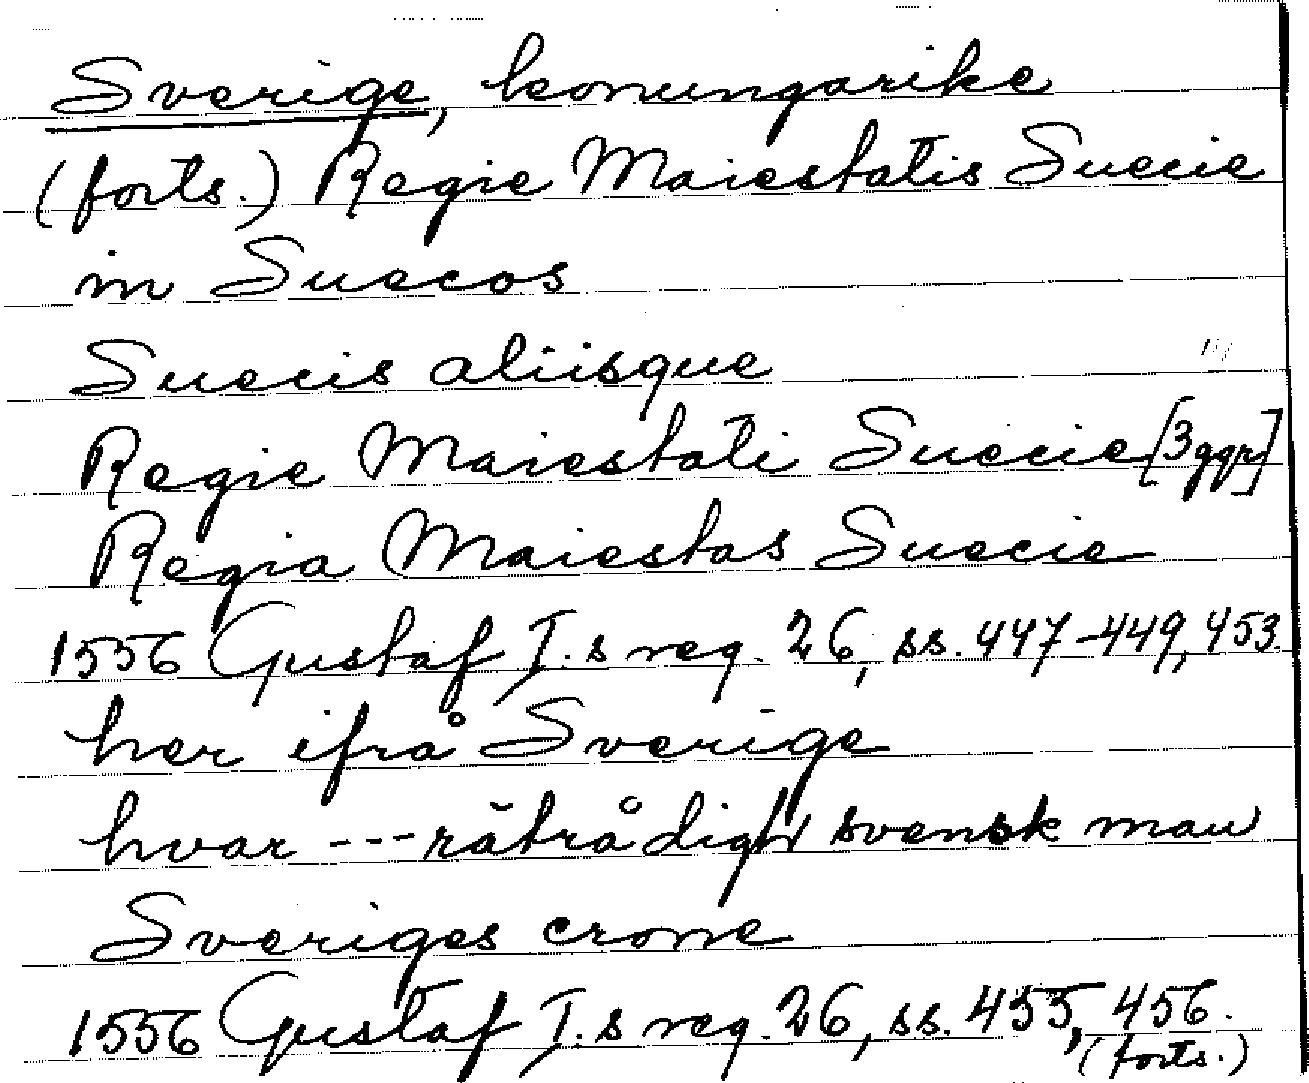 Sverige, konungarike
(forts.) Regie Maiestatis Suecie
in Suecos
Suecis aliisque
Regie Maiestati Suecie [3 ggr]
Regia Maiestas Suecie
1556 Gustaf I.s reg. 26, ss. 447-449, 453.
her ifrå Sverige
hvar --- rätrådigh svensk man
Sveriges crone
1556 Gustaf I.s reg. 26, ss. 455, 456.
(forts.)